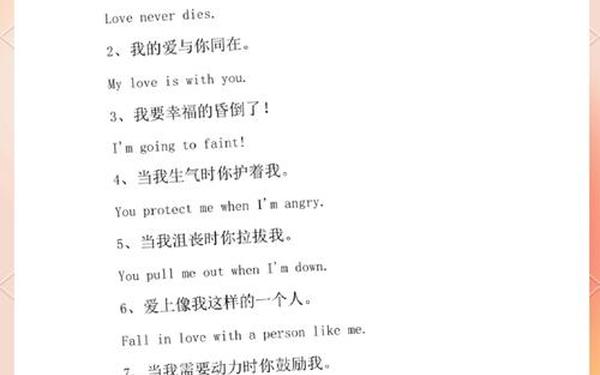 Love never dies.
2、我的爱与你同在。
My love is with you.
3、我要幸福的昏倒了!
I'm going to faint!
4、当我生气时你护着我。
You protect me when I'm angry.
5、当我沮丧时你拉拔我。
You pull me out when I'm down.
6、爱上像我这样的一个人。
Fall in love with a person like me.
7、当我需要动力时你鼓励我。